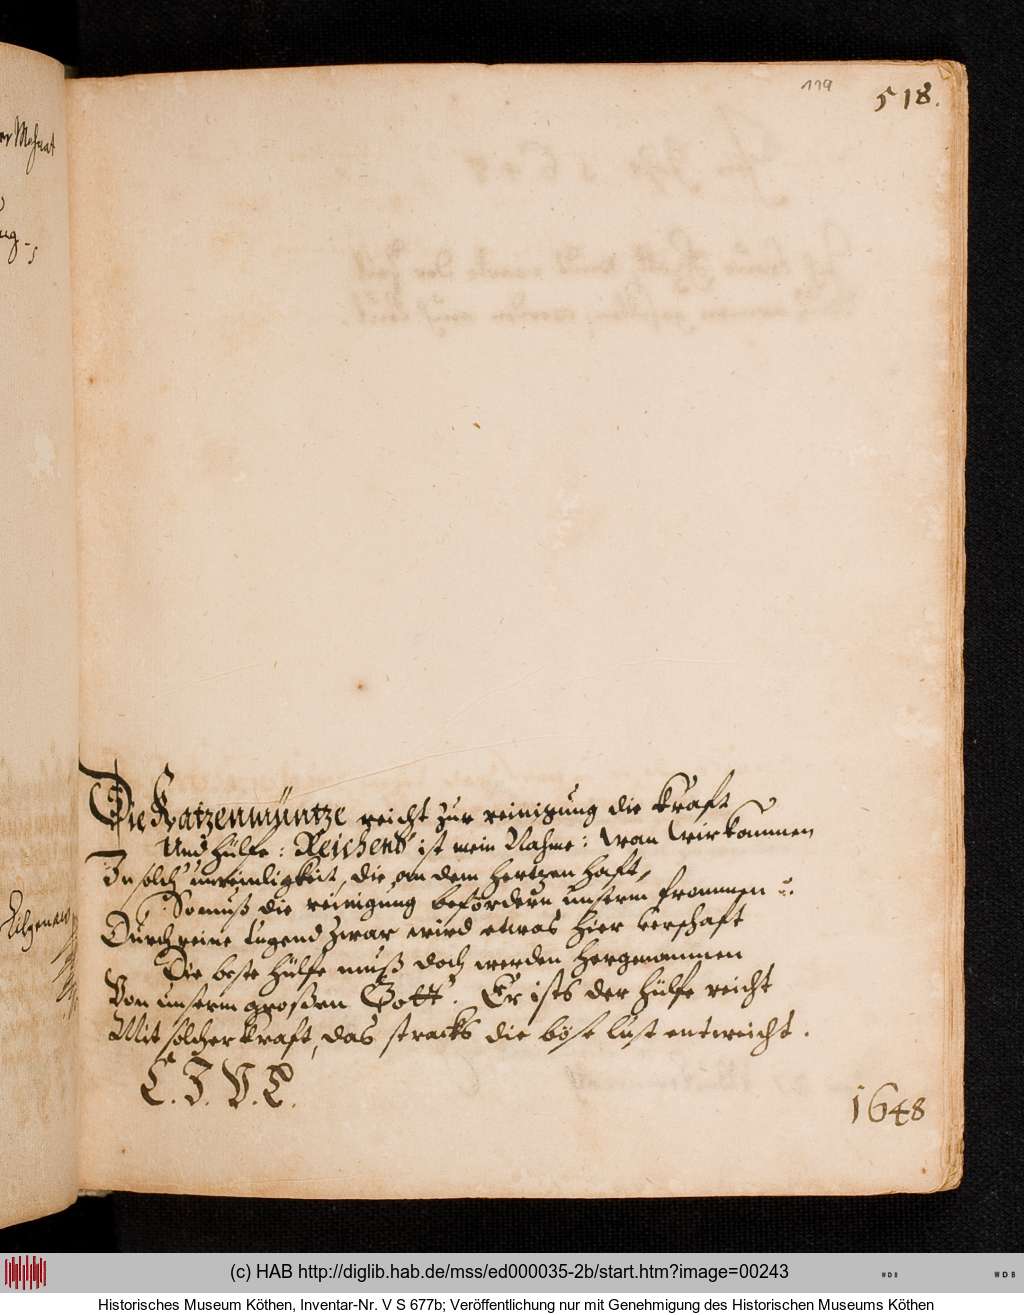 119
518.
Die Katzenmÿntze reicht zur reinigung die kraft
Und hülfe: Reichent ist mein Nahme: wan wir kommen
In solch' unreinligkeit, die, an dem hertzen haft,
So muß die reinigung befördern unserm frommen
Durch reine tugend zwar wird etwas hier verschaft
Die beste hülfe muß doch werden hergenommen
Von unserm großen Gott. Er ists der hülfe reicht
Mit solcher kraft, das stracks die böse lust entweicht.
C. Z. V. C.
1648
(c) HAB http://diglib.hab.de/mss/ed000035-2b/start.htm?image=00243
WDB
WDB
Historisches Museum Köthen, Inventar-Nr. V S 677b; Veröffentlichung nur mit Genehmigung des Historischen Museums Köthen